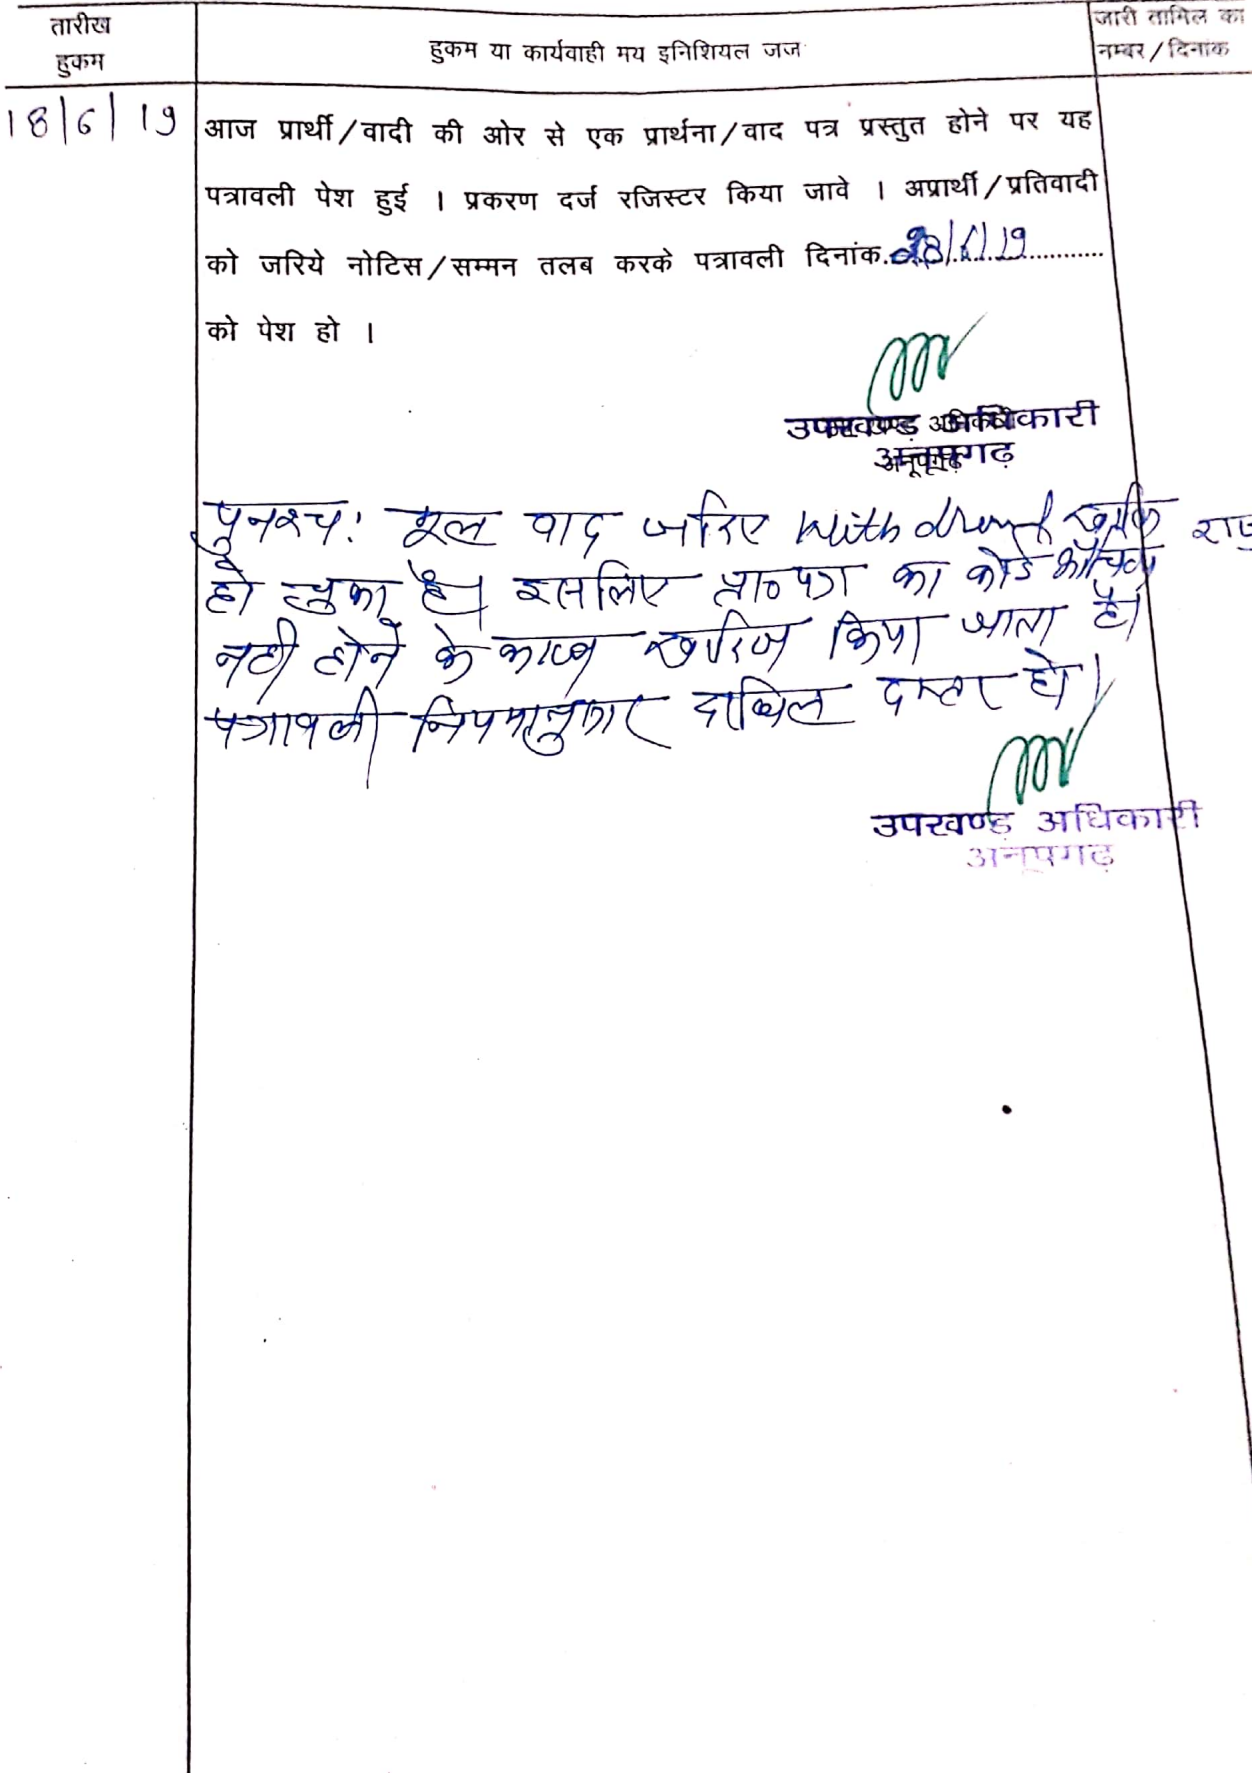 तारीख
हुकम
हुकम या कार्यवाही मय इनिशियल जज
जारी तामिल का
नम्बर/दिनांक
18/6/19
आज प्रार्थी/वादी की ओर से एक प्रार्थना/वाद पत्र प्रस्तुत होने पर यह
पत्रावली पेश हुई । प्रकरण दर्ज रजिस्टर किया जावे । अप्रार्थी/प्रतिवादी
को जरिये नोटिस/सम्मन तलब करके पत्रावली दिनांक
को पेश हो ।
उपखण्ड अधिकारी
अनूपगढ़
पुनश्च: मूल वाद जरिए
हो चुका है। इसलिए प्रा० पत्र का कोई औचित्य
नही होने के कारण खारिज किया जाता है।
पत्रावली नियमानुसार दाखिल दफ्तर हो।
उपखण्ड अधिकारी
अनूपगढ़